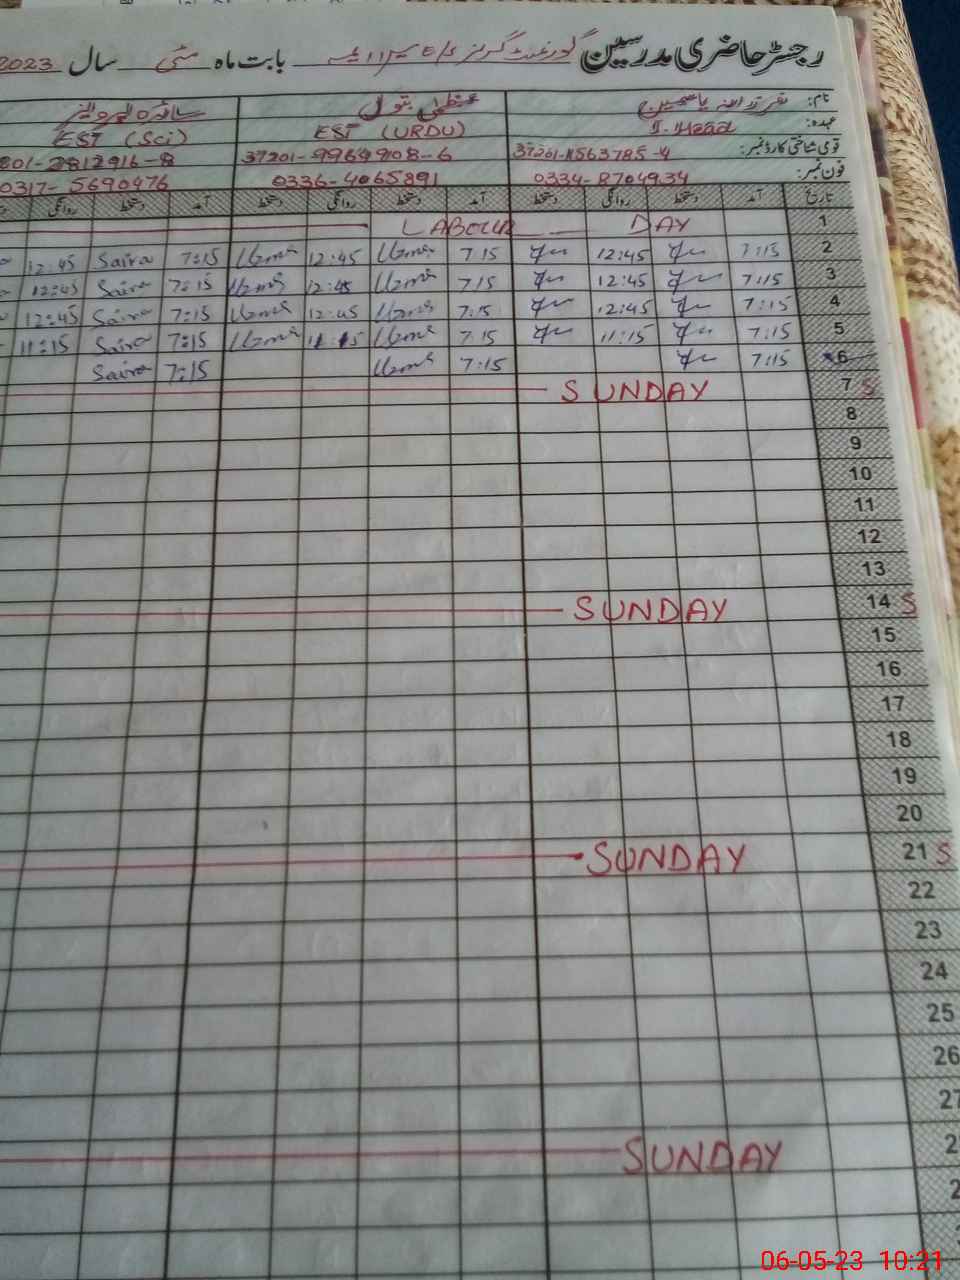 رجسٹر حاضری مدرسین گورنمنٹ گرلز بابت ماہ مئی سال 2023
نام: یاسمین عظمیٰ بتول
عہدہ: EST (URDU) EST (Sci)
قومی شناختی کارڈ نمبر: 37201-9964908-6
فون نمبر: 0334-8704934 0336-4065891 0317-5690476
تاریخ آمد دستخط روانگی دستخط آمد دستخط روانگی دستخط آمد دستخط روانگی
1 LABOUR DAY
2 7:15 12:45 7:15 Uzma 12:45 Uzma 7:15 Saira 12:45
3 7:15 12:45 7:15 Uzma 12:45 Uzma 7:15 Saira 12:45
4 7:15 12:45 7:15 Uzma 12:45 Uzma 7:15 Saira 12:45
5 7:15 11:15 7:15 Uzma 11:15 Uzma 7:15 Saira 11:15
6 7:15 7:15 Uzma 7:15 Saira
7 S SUNDAY
8
9
10
11
12
13
14 S SUNDAY
15
16
17
18
19
20
21 S SUNDAY
22
23
24
25
26
27
SUNDAY
06-05-23 10:21